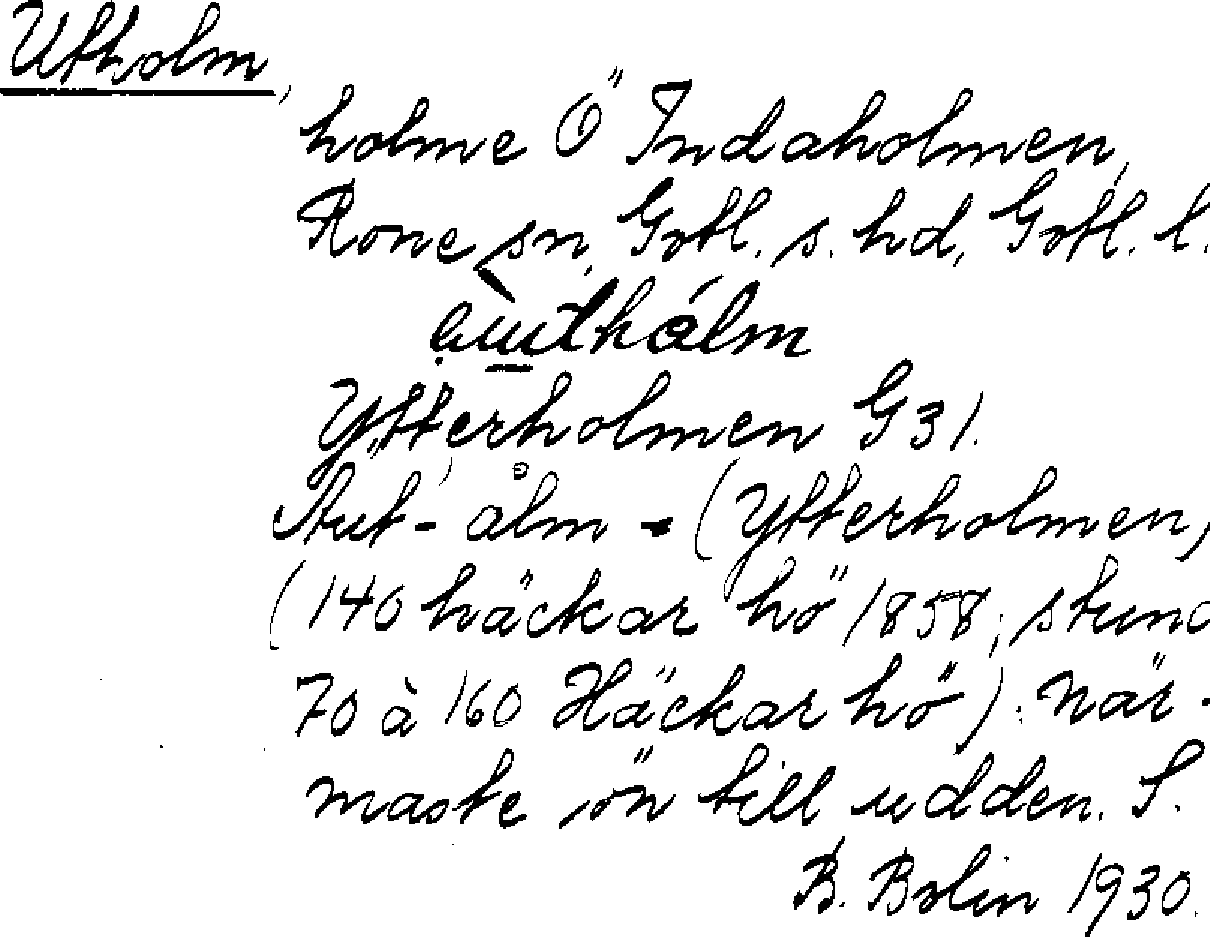 Utholm,
holme Ö Indaholmen,
Rone sn, Gotl. s. hd, Gotl. l.
Ytterholmen G 31.
Aut-ålm - (Ytterholmen,
(140 häckar hö 1858; stund
70 à 160 Häckar hö). När-
maste ön till udden. S.
B. Bolin 1930.